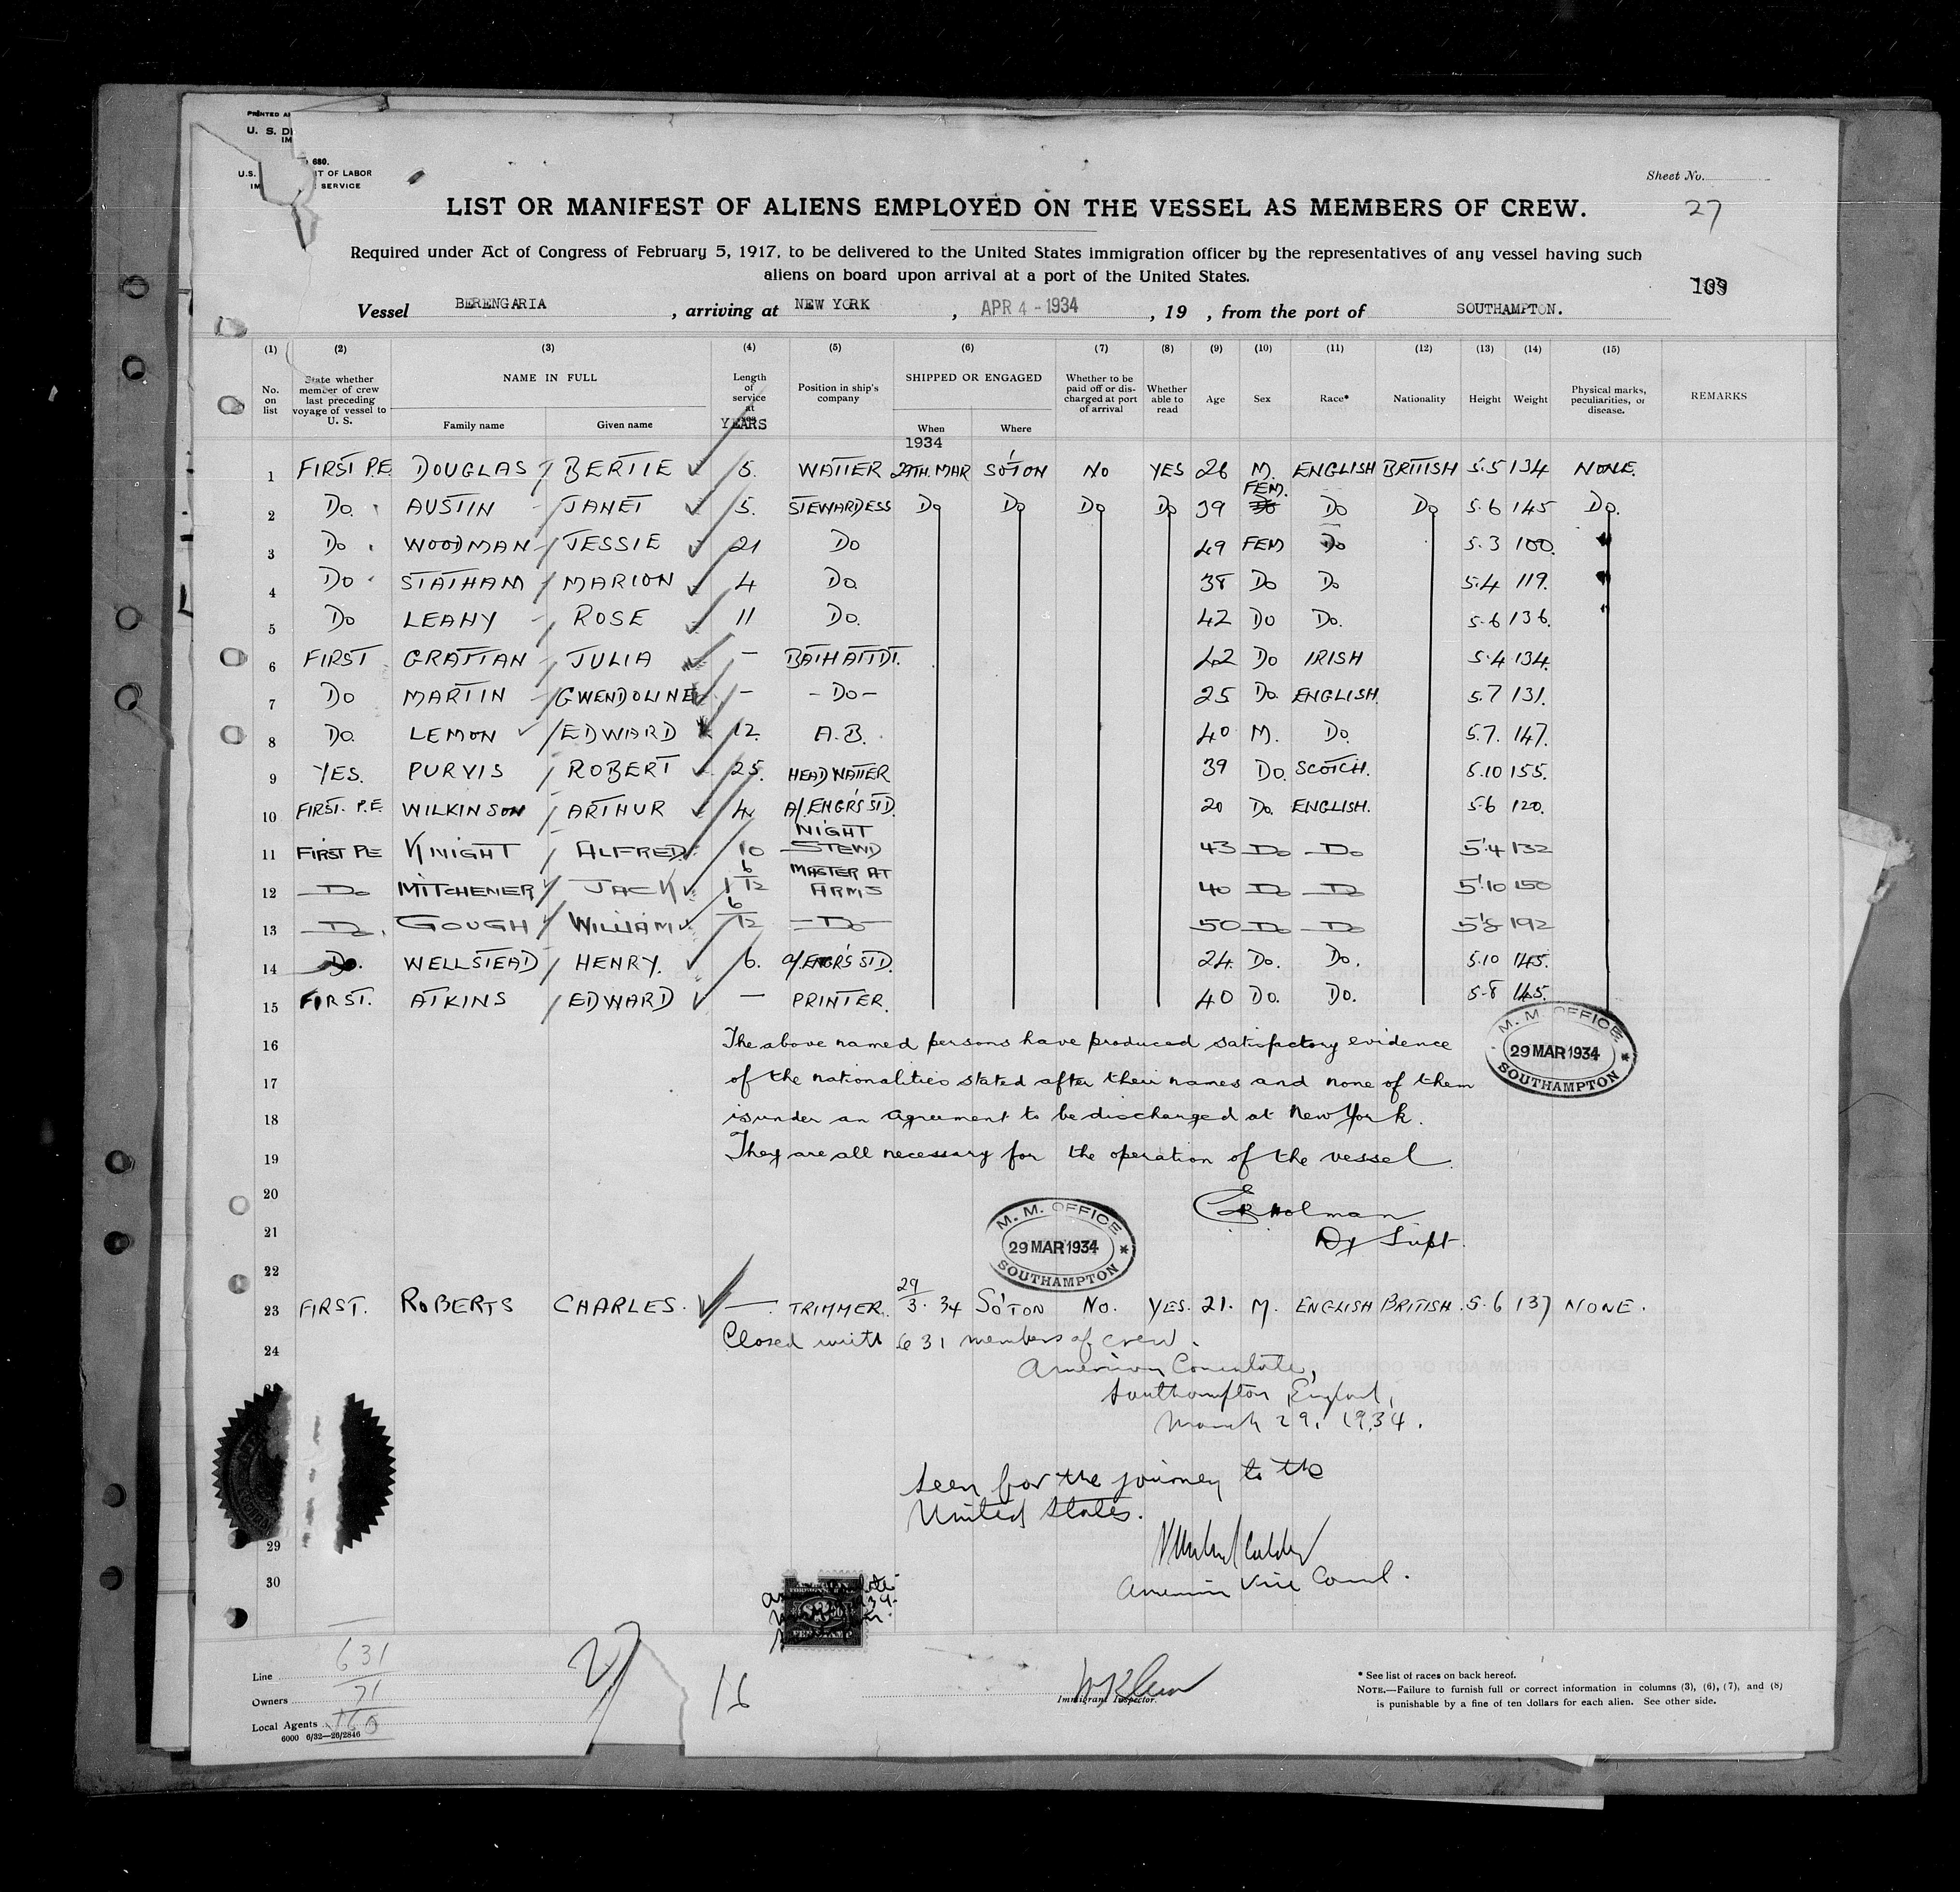 PRINTED
U. S.
680.
U.S. OF LABOR
SERVICE
Sheet No.
27
LIST OR MANIFEST OF ALIENS EMPLOYED ON THE VESSEL AS MEMBERS OF CREW.
Required under Act of Congress of February 5, 1917, to be delivered to the United States immigration officer by the representatives of any vessel having such
aliens on board upon arrival at a port of the United States.
109
Vessel BERENGARIA , arriving at NEW YORK , APR 4 - 1934 , 19 , from the port of SOUTHAMPTON.
(1) (2) (3) (4) (5) (6) (7) (8) (9) (10) (11) (12) (13) (14) (15)
No. on list State whether member of crew last preceding voyage of vessel to U. S. NAME IN FULL Family name Given name Length of service at YEARS Position in ship's company SHIPPED OR ENGAGED When Where Whether to be paid off or discharged at port of arrival Whether able to read Age Sex Race* Nationality Height Weight Physical marks, peculiarities, or disease. REMARKS
1934
1 FIRST P.E. DOUGLAS BERTIE 5. WAITER 29TH. MAR SO'TON NO YES 26 M. ENGLISH BRITISH 5.5 134 NONE.
2 Do. AUSTIN JANET 5. STEWARDESS Do Do Do Do 39 FEM. Do Do 5.6 145 Do.
3 Do WOODMAN JESSIE 21 Do 49 FEM Do 5.3 100.
4 Do STATHAM MARION 4 Do. 38 Do Do 5.4 119.
5 Do LEAHY ROSE 11 Do. 42 Do Do. 5.6 136.
6 FIRST GRATTAN JULIA — BATH ATTDT. 42 Do IRISH 5.4 134.
7 Do MARTIN GWENDOLINE — - Do - 25 Do. ENGLISH. 5.7 131.
8 Do. LEMON EDWARD 12. A.B. 40 M. Do. 5.7. 147.
9 YES. PURVIS ROBERT 25. HEAD WAITER 39 Do. SCOTCH. 5.10 155.
10 FIRST. P.E. WILKINSON ARTHUR 4 A/. ENGR'S STD. 20 Do. ENGLISH. 5.6 120.
11 FIRST PE KNIGHT ALFRED 10 NIGHT STEWD 43 Do Do 5'4 132
12 Do MITCHENER JACK 1 6/12 MASTER AT ARMS 40 Do Do 5'10 150
13 Do. GOUGH WILLIAM 6/12 Do 50 Do Do 5'8 192
14 Do. WELLSTEAD HENRY. 6. A/ENGR'S STD. 24. Do. Do. 5.10 145.
15 FIRST. ATKINS EDWARD — PRINTER. 40 Do. Do. 5.8 145.
M. M. OFFICE
29 MAR 1934
SOUTHAMPTON
16 The above named persons have produced satisfactory evidence
17 of the nationalities stated after their names and none of them
18 is under an agreement to be discharged at New York.
19 They are all necessary for the operation of the vessel.
20 Holman
21 Dy Supt.
M. M. OFFICE
29 MAR 1934
SOUTHAMPTON
22
23 FIRST. ROBERTS CHARLES. — TRIMMER. 29/3. 34 SO'TON NO. YES. 21. M. ENGLISH BRITISH. 5.6 137 NONE.
24 Closed with 631 members of crew.
American Consulate,
Southampton, England,
March 29, 1934.
Seen for the journey to the
United States.
29
American Vice Consul.
30
Line 631
Owners 71
Local Agents 160
6000 6/32—26/2846
27
16
Immigrant Inspector.
* See list of races on back hereof.
NOTE.—Failure to furnish full or correct information in columns (3), (6), (7), and (8)
is punishable by a fine of ten dollars for each alien. See other side.